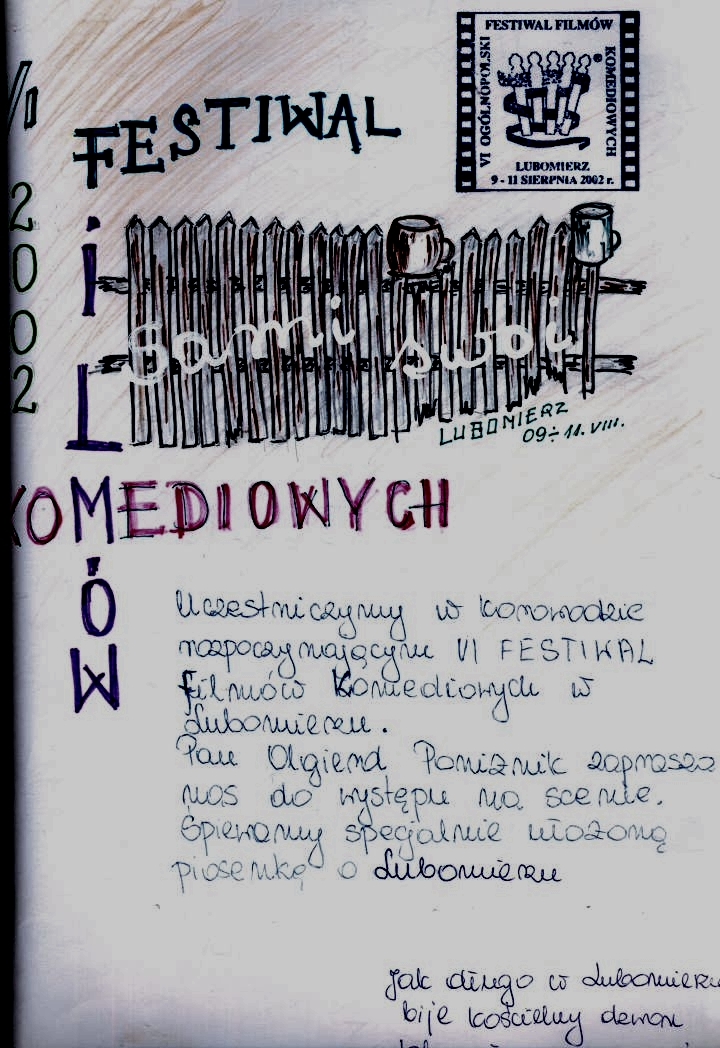 VI
2002
FESTIWAL
FILMÓW
KOMEDIOWYCH
FESTIWAL FILMÓW
KOMEDIOWYCH
VI OGÓLNOPOLSKI
LUBOMIERZ
9 - 11 SIERPNIA 2002 r.
Sami swoi
LUBOMIERZ
09÷11.VIII.
Uczestniczymy w korowodzie
rozpoczynającym VI FESTIWAL
Filmów Komediowych w
Lubomierzu.
Pan Olgierd Poniźnik zaprasza
nas do występu na scenie.
Śpiewamy specjalnie ułożoną
piosenkę o Lubomierzu
Jak długo w Lubomierzu
bije kościelny dzwon